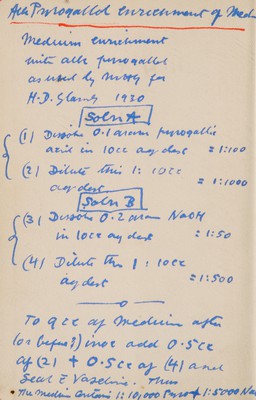 Alk Pyrogallol enrichment of Medi
Medium enrichment
with alk pyrogallol
as used by for
H.D. 1930
Soln A
(1) Dissolve 0.1 gram pyrogallic
acid in 10cc aq dest = 1:100
(2) Dilute this 1:10cc
aq dest = 1:1000
Soln B
(3) Dissolve 0.2 gram NaOH
in 10cc aq dest = 1:50
(4) Dilute this 1:10cc
aq dest = 1:500
To 9cc of Medium after
(or before?) inoc add 0.5cc
of (2) + 0.5cc of (4) and
Seal c̄ Vaseline. Thus
The medium contains 1:10,000 Pyro + 1:5000 Na